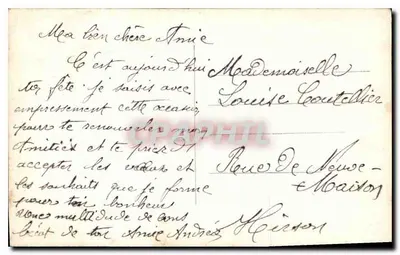 Ma bien chère Amie
C'est aujourd'hui
ta fête je saisis avec
empressement cette ocasion
pour te renouveler mes
Amitiés et te prier d'
accepter les vœux et
les souhaits que je forme
pour ton bonheur
une multidude de bons
de ton Amie Andréa
Mademoiselle
Louise Coutellier
Rue De Neuve-
Maison
Hirson